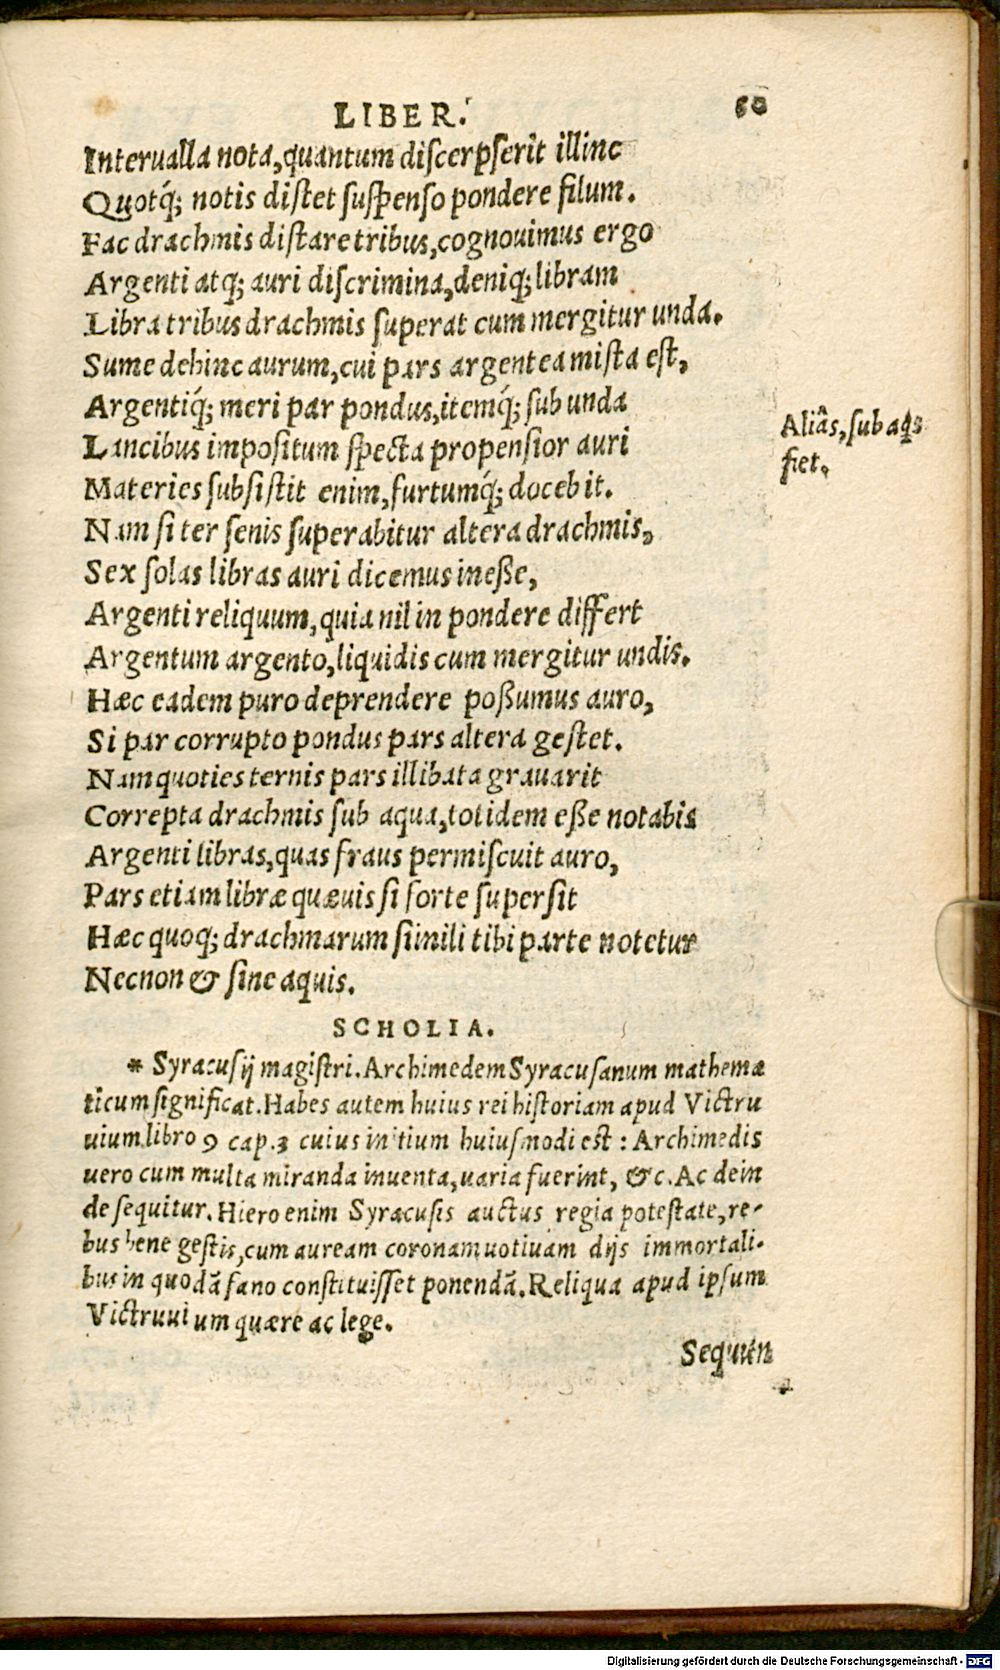 LIBER.
60
Interualla nota, quantum discerpserit illinc
Quotq́; notis distet suspenso pondere filum.
Fac drachmis distare tribus, cognouimus ergo
Argenti atq; auri discrimina, deniq; libram
Libra tribus drachmis superat cum mergitur unda.
Sume dehinc aurum, cui pars argentea mista est,
Argentiq́; meri par pondus, itemq́; sub unda
Lancibus impositum specta propensior auri
Alias, sub aq̃s
fiet.
Materies subsistit enim, furtumq́; docebit.
Nam si ter senis superabitur altera drachmis,
Sex solas libras auri dicemus ineße,
Argenti reliquum, quia nil in pondere differt
Argentum argento, liquidis cum mergitur undis.
Hæc eadem puro deprendere poßumus auro,
Si par corrupto pondus pars altera gestet.
Nam quoties ternis pars illibata grauarit
Correpta drachmis sub aqua, totidem eße notabis
Argenti libras, quas fraus permiscuit auro,
Pars etiam libræ quæuis si forte supersit
Hæc quoq; drachmarum simili tibi parte notetur
Necnon & sine aquis.
SCHOLIA.
* Syracusij magistri. Archimedem Syracusanum mathema
ticum significat. Habes autem huius rei historiam apud Victru
uium libro 9 cap. 3 cuius initium huiusmodi est: Archimedis
uero cum multa miranda inuenta, uaria fuerint, &c. Ac dein
de sequitur. Hiero enim Syracusis auctus regia potestate, re-
bus bene gestis, cum auream coronam uotiuam dijs immortali-
bus in quodã fano constituisset ponendã. Reliqua apud ipsum
Victruuium quære ac lege.
Sequun
Digitalisierung gefördert durch die Deutsche Forschungsgemeinschaft - DFG